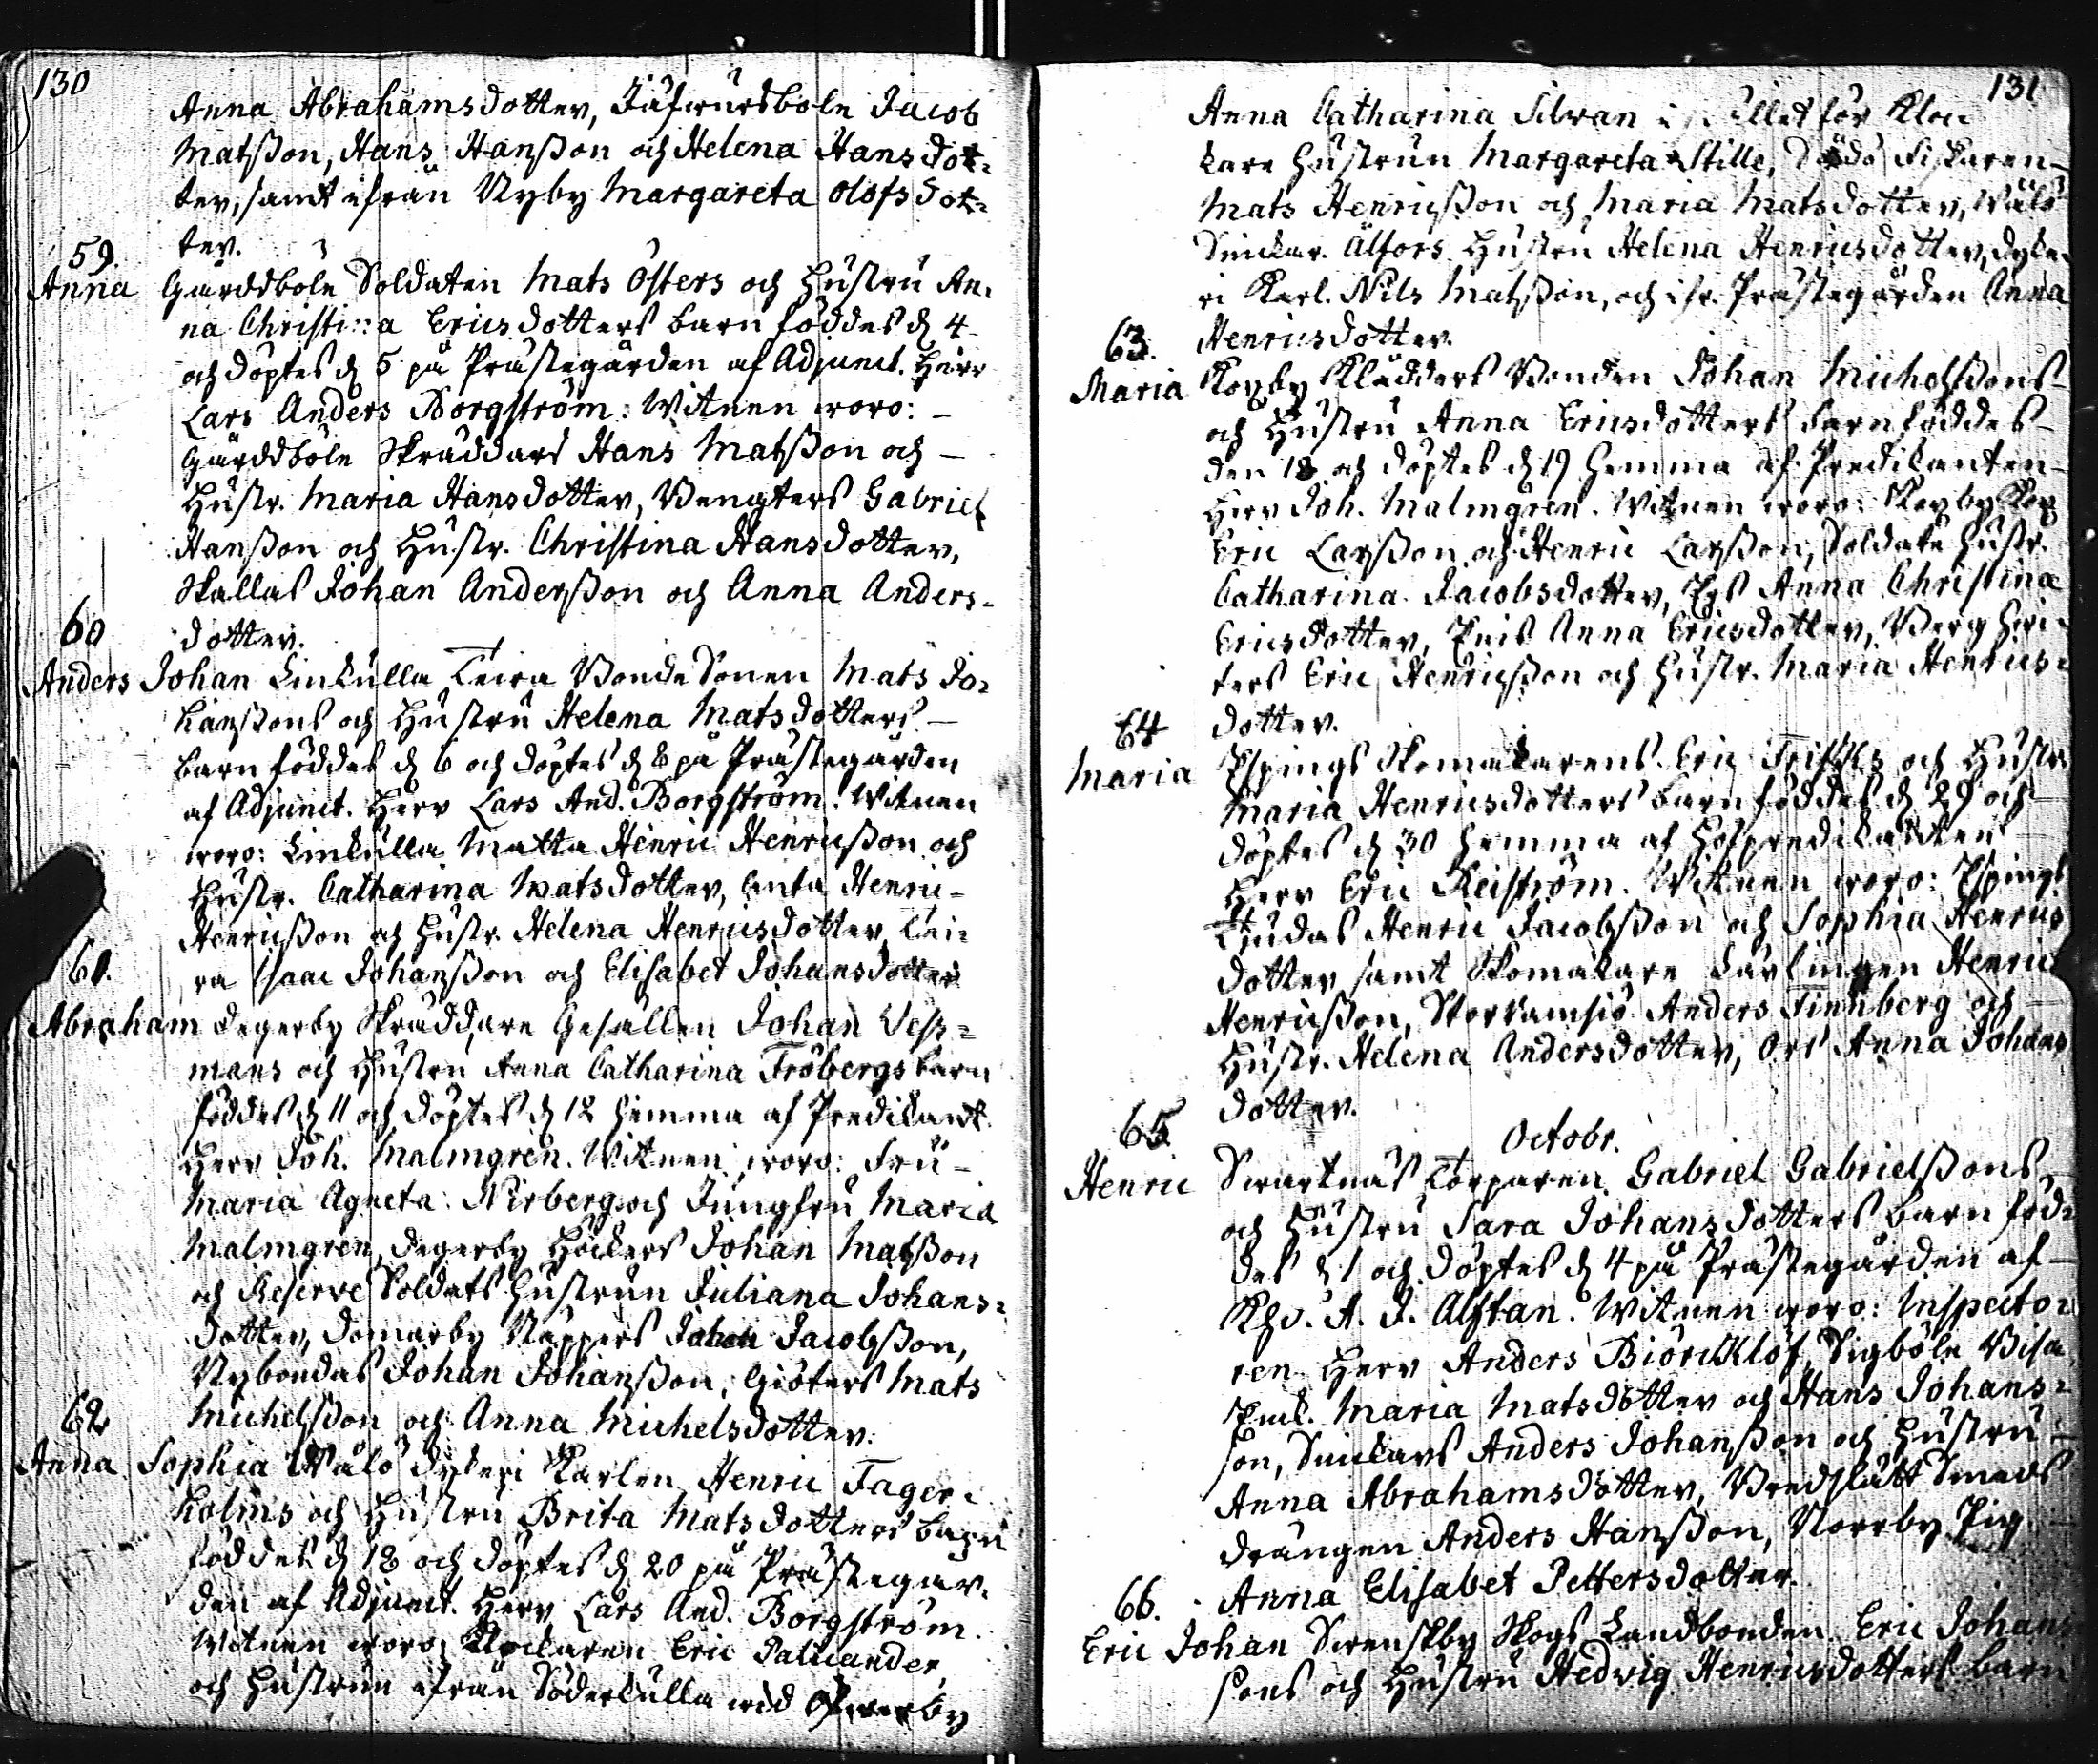 130
Anna Abrahamsdotter, Jacob
Matsson, Hans Hansson och Helena Hansdot-
ter, samt ifrån Nyby Margareta Olofsdot-
ter.
59.
Anna Gårddböle Soldaten Mats Östers och Hustru An-
na Christina Ericsdotters barn föddes d 4
och döptes d 5 på Prästegården af Adjunct. Herr
Lars Anders Borgström: Witnen woro:
Gårddböle Skräddars Hans Matsson och
Hustr. Maria Hansdotter, Bengters Gabriel
Hansson och Hustr. Christina Hansdotter,
Skallas Johan Andersson och Anna Anders-
dotter.
60
Anders Johan Linkulla Leira Bonde Sonen Mats Jo-
hanssons och Hustru Helena Matsdotters
barn föddes d 6 och döptes d 8 på Prästegården
af Adjunct. Herr Lars And. Borgström. Witnen
woro: Linkulla Matta Henric Henricsson och
Hustr. Catharina Matsdotter, Henric
Henricsson och Hustr. Helena Henricsdotter, Lei-
ra Isaac Johansson och Elisabet Johansdotter
61.
Abraham Degerby Skräddare Gesällen Johan Vess-
mans och Hustru Anna Catharina Fröbergs barn
föddes d 11 och döptes d 12 hemma af Predikant.
Herr Joh. Malmgren. Witnen woro: Fru
Maria Agneta Nirberg och Jungfru Maria
Malmgren, Degerby Höckers Johan Matsson
och Reserve Soldats Hustrun Juliana Johans-
dotter, Domarby Näppers Johan Jacobsson,
Nybondas Johan Johansson, Giöters Mats
Michelsson och Anna Michelsdotter.
62
Anna Sophia Wålö Karlen Henric Fager-
holms och Hustru Brita Matsdotters barn
föddes d 18 och döptes d 20 på Prästegår-
den af Adjunct. Herr Lars And. Borgström.
Witnen woro Klockaren Eric Paliander
och Hustrun ifrån Söderkulla wid
131
Anna Catharina Silvan i stället för Kloc
kare Hustrun Margareta Stille, Fiskaren
Mats Henricsson och Maria Matsdotter, Wålö
Snickar. Älfors Hustru Helena Henricsdotter,
ri Karl. Nils Matsson, och ifr. Prästegården Anna
Henricsdotter.
63.
Maria Kopby Klädders Bonden Johan Michelssons
och Hustru Anna Ericsdotters barn föddes
den 18 och döptes d 19 hemma af Predikanten
Herr Joh. Malmgren. Witnen woro: Kopby
Eric Larsson och Henric Larsson, Soldate Hustr.
Catharina Jacobsdotter, Anna Christina
Ericsdotter, Anna Ericsdotter, Berg
ters Eric Henricsson och Hustr. Maria Henrics-
dotter.
64
Maria Espings Skomakarens Eric Frisks och Hustr.
Maria Henricsdotters barn föddes d 29 och
döptes d 30 hemma af Hofpredikanten
Herr Eric Reiström. Witnen woro: Espings
Ljudas Henric Jacobsson och Sophia Henrics
dotter samt Skomakare Lärlingen Henric
Henricsson, Storramsiö Anders Finnberg och
Hustr. Helena Andersdotter, Anna Johans
dotter.
Octobr.
65
Henric Swartnäs Torparen Gabriel Gabrielssons
och Hustru Sara Johansdotters barn föd-
des d 1 och döptes d 4 på Prästegården af
A. J. Alftan. Witnen woro: Inspecto-
ren Herr Anders Biörcklöf, Sigböle
Maria Matsdotter och Hans Johans-
son, Snickars Anders Johansson och Hustru
Anna Abrahamsdotter, Bredslätt Smeds
drängen Anders Hansson, Norrby Pig.
Anna Elisabet Pettersdotter.
66.
Eric Johan Swenskby Skogs Landbonden Eric Johans
sons och Hustru Hedvig Henricsdotters barn